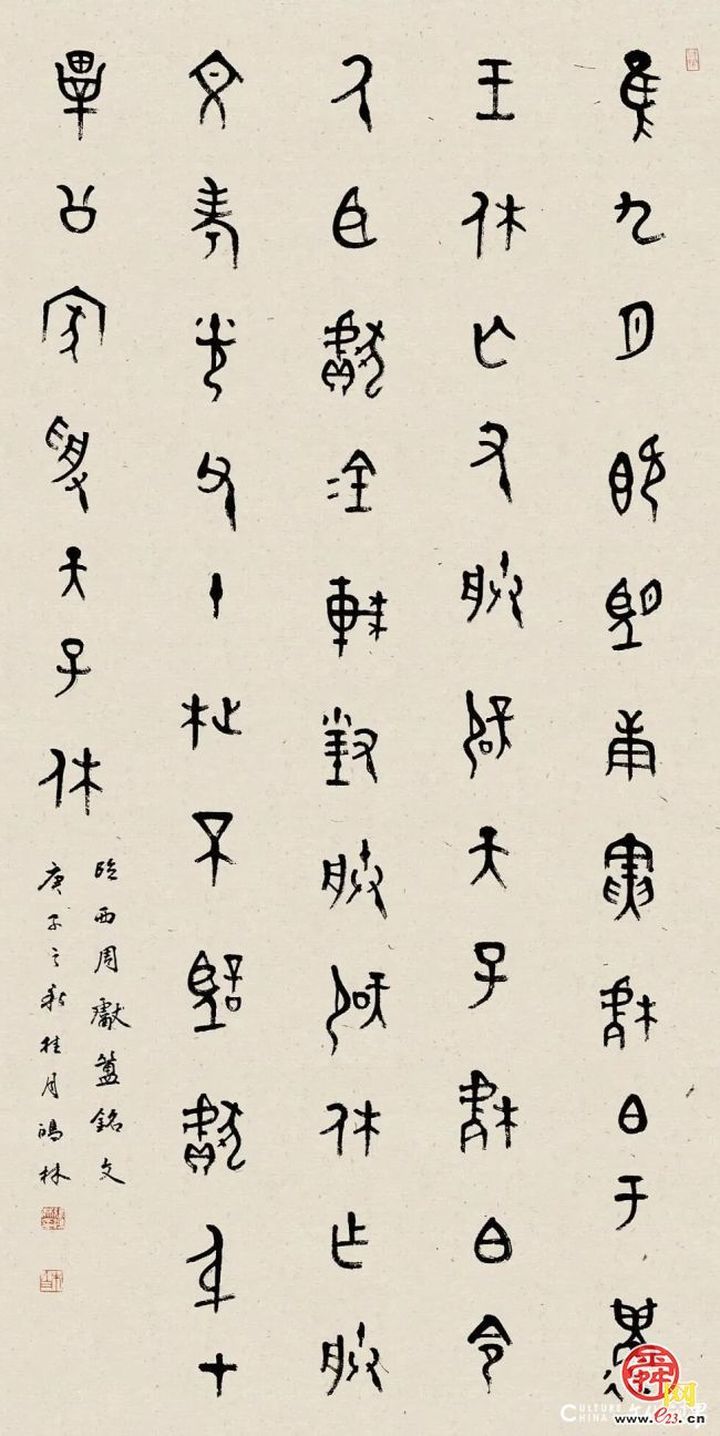 隹九月既望庚寅楷白于遘
王休亡尤朕辟天子楷白令
氒臣獻金車對朕辟休乍朕
文考光父十枻不忘獻身才
畢公家受天子休
临西周獻簋銘文
庚子之秋桂月鴻林
舜网
www.e23.cn
CULTURE
CHINA